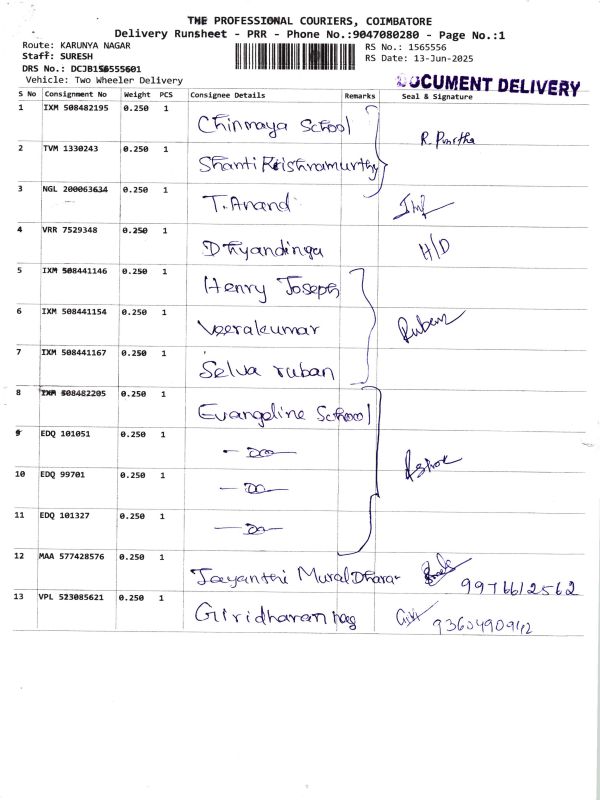 THE PROFESSIONAL COURIERS, COIMBATORE
Delivery Runsheet - PRR - Phone No.:9047080280 - Page No.:1
Route: KARUNYA NAGAR
Staff: SURESH
DRS No.: DCJB156555601
Vehicle: Two Wheeler Delivery
RS No.: 1565556
RS Date: 13-Jun-2025
DOCUMENT DELIVERY
S No Consignment No Weight PCS Consignee Details Remarks Seal & Signature
1 IXM 508482195 0.250 1 Chinmaya School
2 TVM 1330243 0.250 1 Shanti Krishramurthy
3 NGL 200063634 0.250 1 T. Anand
4 VRR 7529348 0.250 1 Dhyandinga H/D
5 IXM 508441146 0.250 1 Henry Joseph
6 IXM 508441154 0.250 1 Veerakumar Ruben
7 IXM 508441167 0.250 1 Selva ruban
8 IXM 508482205 0.250 1 Evangeline School
9 EDQ 101051 0.250 1 - Do -
10 EDQ 99701 0.250 1 - Do -
11 EDQ 101327 0.250 1 - Do -
12 MAA 577428576 0.250 1 Jayanthi MuralDharar 9976612562
13 VPL 523085621 0.250 1 Giridharan nag Giri 9360490942